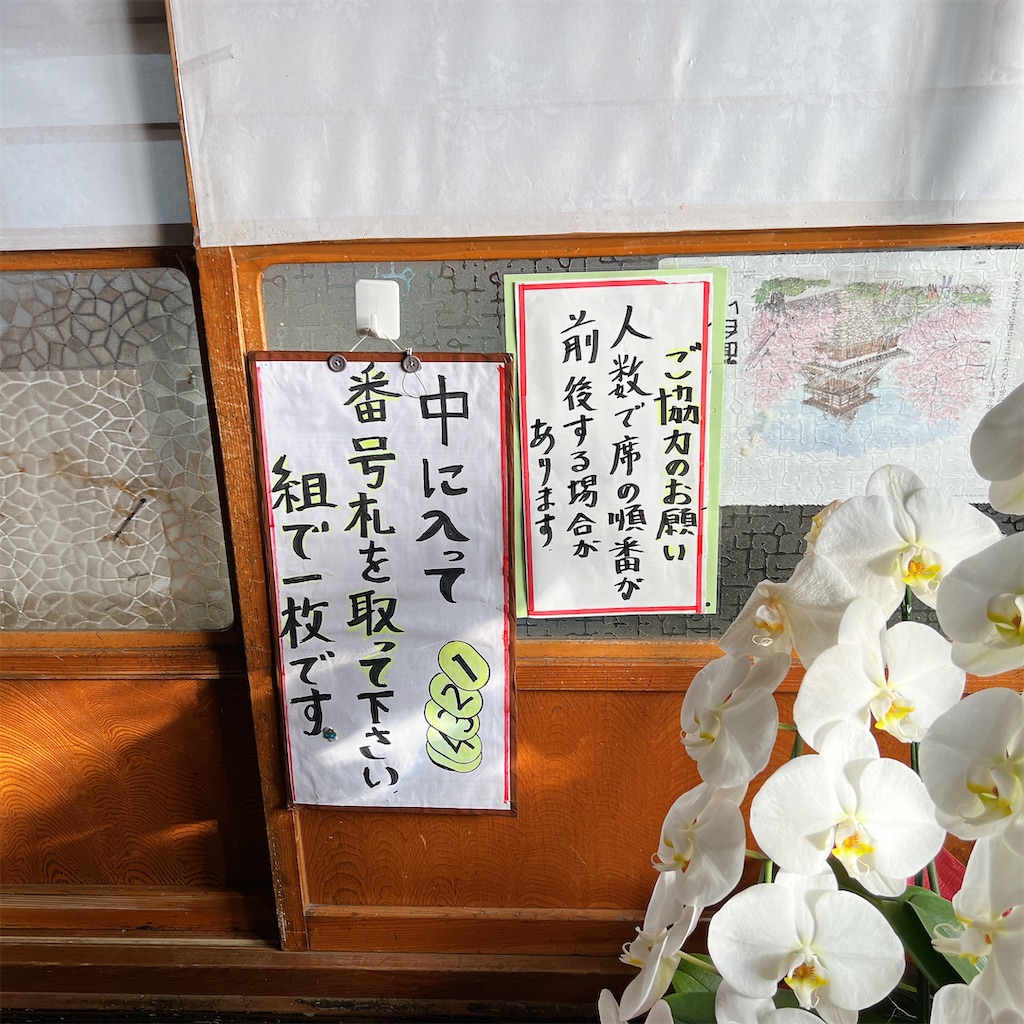 ご協力のお願い
人数で席の順番が
前後する場合が
あります
中に入って
番号札を取って下さい
組で一枚です。
1
2
3
4